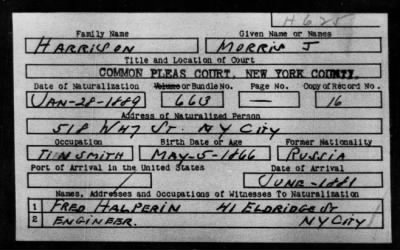 H625
Family Name Given Name or Names
HARRISON MORRIS J
Title and Location of Court
COMMON PLEAS COURT, NEW YORK COUNTY.
Date of Naturalization Volume or Bundle No. Page No. Copy of Record No.
JAN-28-1889 6613 — 16
Address of Naturalized Person
518 W 47 ST. NY CITY
Occupation Birth Date or Age Former Nationality
TINSMITH MAY-5-1866 RUSSIA
Port of Arrival in the United States Date of Arrival
JUNE-1881
Names, Addresses and Occupations of Witnesses To Naturalization
1 FRED HALPERIN 41 ELDRIDGE ST
2 ENGINEER. NY CITY